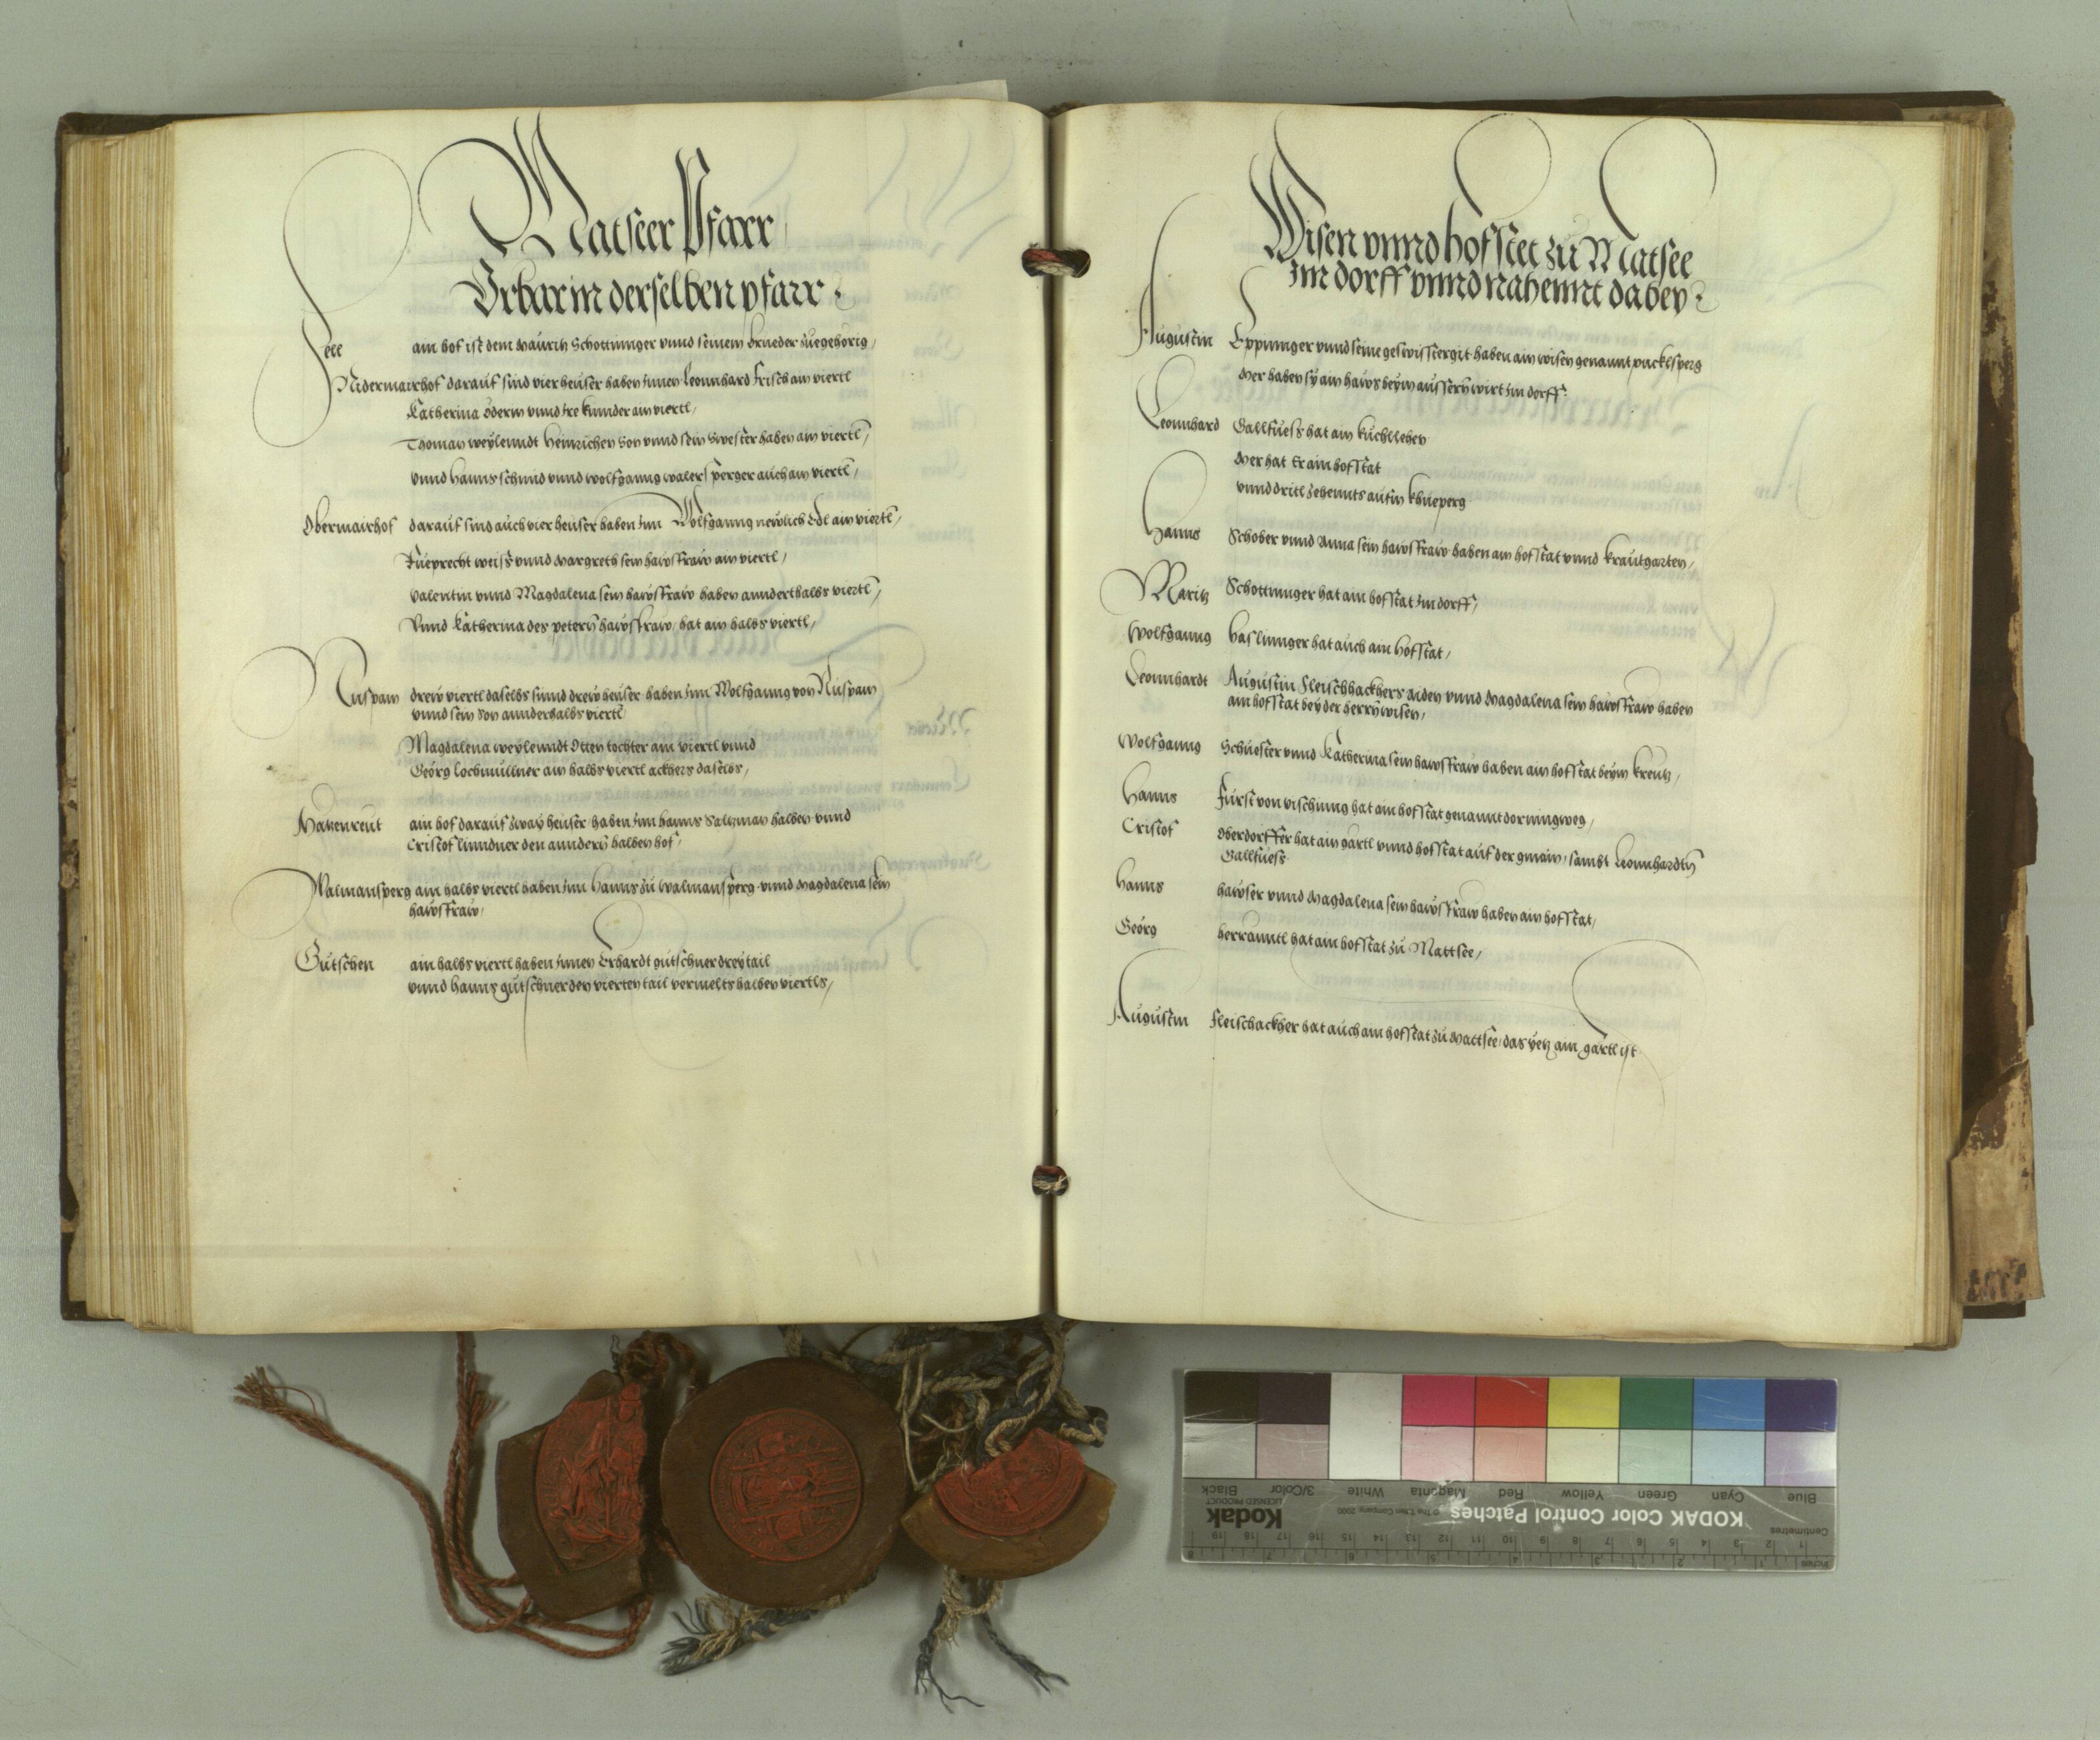 Matseer Pfarr
Urbar in derselben pfarr
See ain hof ist dem Mauritz Schottninger vnnd seinem brueder zuegehörig,
Nidermairhof darauf sind vier heuser haben Innen Leonnhard Frisch ain viertl
Katherina vnnd Ire kinnder ain viertl,
Thoman weylenndt Heinrichen Son vnnd sein Swester haben ain viertl,
vnnd Hanns schmid vnnd wolfganng walersperger auch ain viertl,
Obermairhof darauf sind auch vier heuser haben Inn Wolfganng newlich Edl ain viertl,
Rueprecht weiss vnnd Margreth sein hawsfraw ain viertl,
Valentin vnnd Magdalena sein hawsfraw haben annderthalbs viertl,
Vnnd Katherina des petern hawsfraw hat ain halbs viertl,
Nuspam drew viertl daselbs sinnd drew heuser haben Inn Wolfganng von Nuspam
vnnd sein Son annderhalbs viertl
Magdalena weylenndt Otten tochter ain viertl vnnd
Georg Lochmullner ain halbs viertl ackhers daselbs,
Hakenreut ain hof darauf zway heuser haben Inn hanns Saltzman halben vnnd
Cristof linndner den anndern halben hof,
Walmansperg ain halbs viertl haben Inn Hanns zu walmansperg vnnd Magdalena sein
hawsfraw,
Gutschen ain halbs viertl haben Innen Erhardt gutschner drey tail
vnnd hanns gutschner den vierten tail vermelts halben viertls,
Wisen vnnd hofstet zu Matsee
Im dorff vnnd nahennt dabey
Augustin Eppinnger vnnd seine geswistergit haben ain wisen genannt pucklsperg
Mer haben sy ain haws beym aussern wirt Im dorff
Leonnhard Gallfuess hat ain kuchllehen
Mer hat Er ain hofstat
vnnd dritl zehennts aufm khueperg
Hanns Schober vnnd Anna sein hawsfraw haben ain hofstat vnnd krautgarten,
Maritz Schottninger hat ain hofstat Im dorff,
Wolfganng haslinnger hat auch ain hofstat,
Leonnhardt Augustin fleischhackhers aiden vnnd Magdalena sein hawsfraw haben
ain hofstat bey der herrn wisen,
Wolfganng Schuester vnnd Katherina sein hawsfraw haben ain hofstat beym kreutz,
Hanns Furst von vischinng hat ain hofstat genannt dorningweg,
Cristof Oberdorffer hat ain gartl vnnd hofstat auf der gmain, sambt Leonnhardtn
Gallfuess
Hanns hawser vnnd Magdalena sein hawsfraw haben ain hofstat,
Georg herranntl hat ain hofstat zu Mattsee,
Augustin fleischackher hat auch ain hofstat zu Mattsee, das yetz ain gartl ist
KODAK Color Control Patches
Kodak
LICENSED PRODUCT
© The Tiffen Company, 2000
Blue Cyan Green Yellow Red Magenta White 3/Color Black
Centimetres 1 2 3 4 5 6 7 8 9 10 11 12 13 14 15 16 17 18 19
Inches 1 2 3 4 5 6 7 8